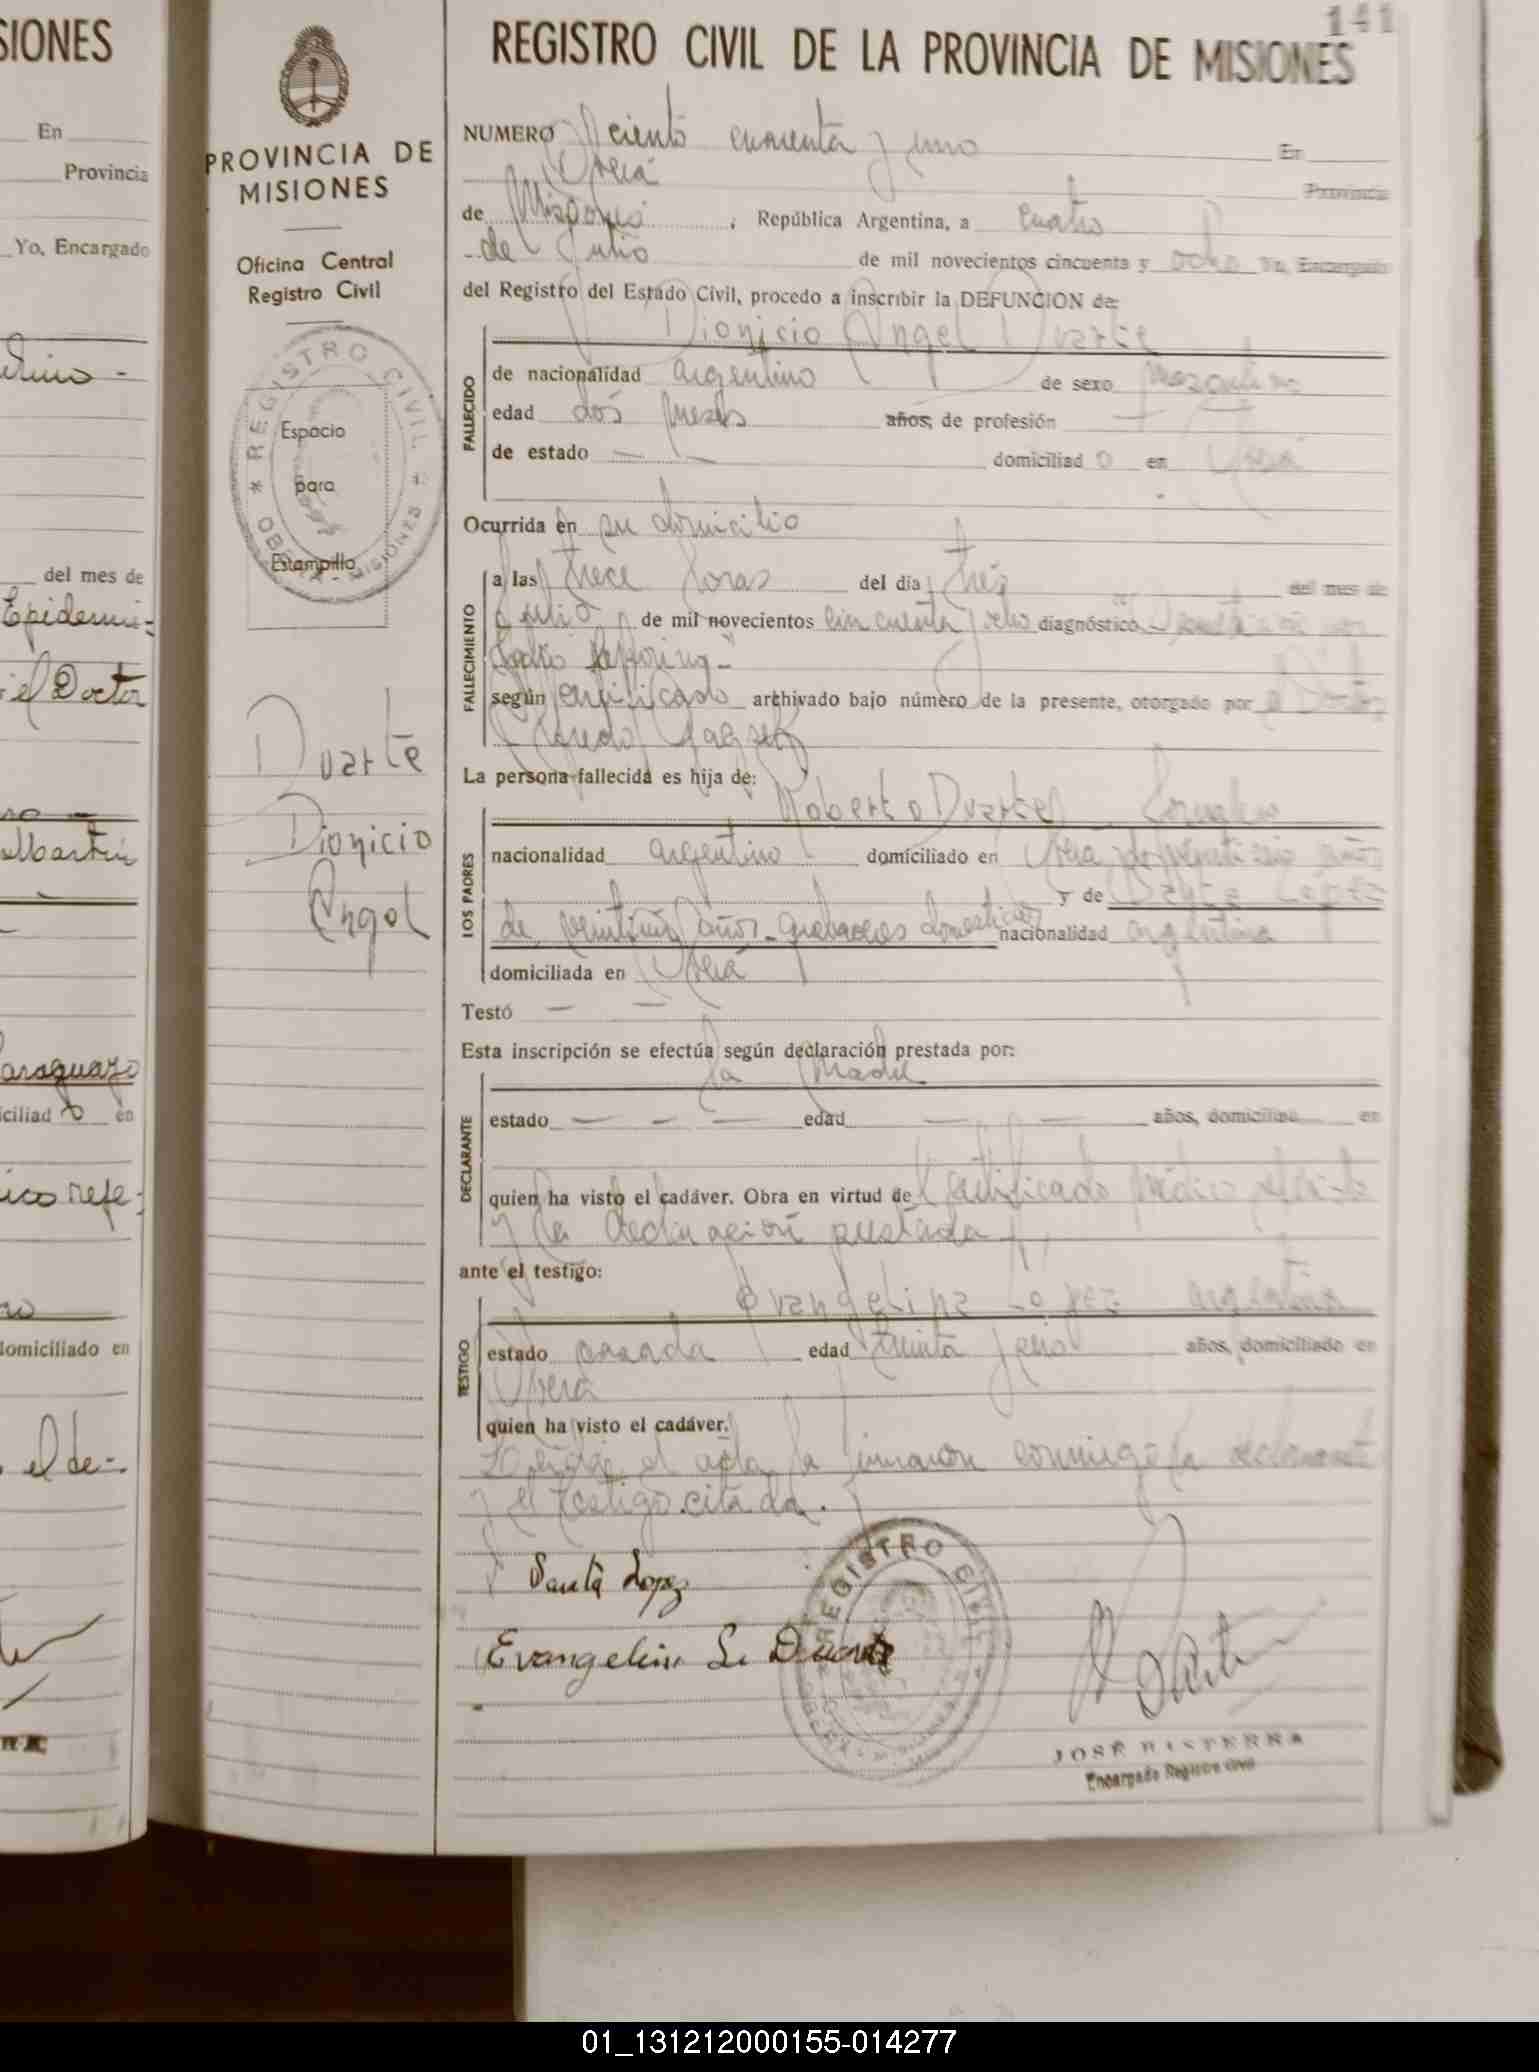 SIONES
En
Provincia
Yo, Encargado
del mes de
Epidemi-
el Doctor
Martin
Paraguayo
iciliad o en
ico refe-
domiciliado en
el de-
PROVINCIA DE
MISIONES
Oficina Central
Registro Civil
* REGISTRO CIVIL *
OBERA - MISIONES
Espacio
para
Estampilla
Duarte
Dionicio
Angel
141
REGISTRO CIVIL DE LA PROVINCIA DE MISIONES
NUMERO ciento cuarenta y uno En
Oberá Provincia
de Misiones, República Argentina, a cuatro
de Julio de mil novecientos cincuenta y ocho Yo, Encargado
del Registro del Estado Civil, procedo a inscribir la DEFUNCION de:
Dionicio Angel Duarte
FALLECIDO
de nacionalidad argentino de sexo masculino
edad dos meses años, de profesión —
de estado — — domiciliad o en Oberá
Ocurrida en su domicilio
FALLECIMIENTO
a las trece horas del día tres del mes de
Julio de mil novecientos cincuenta y ocho diagnóstico
según certificado archivado bajo número de la presente, otorgado por el Doctor
La persona fallecida es hija de:
LOS PADRES
Roberto Duarte
nacionalidad argentino domiciliado en Oberá años
y de López
de años - quehaceres domesticos nacionalidad argentina
domiciliada en Oberá
Testó — —
Esta inscripción se efectúa según declaración prestada por:
DECLARANTE
la Madre
estado — — — edad — — años, domiciliad en
quien ha visto el cadáver. Obra en virtud del certificado médico
y la declaración prestada
ante el testigo:
TESTIGO
Evangelina Lopez argentina
estado casada edad treinta y años, domiciliado en
Oberá
quien ha visto el cadáver.
Leída el acta la firmaron conmigo la declarante
y el testigo citada.
Santa Lopez
Evangelina L. Duarte
REGISTRO CIVIL
OBERA - MISIONES
JOSÉ BISTERRA
Encargado Registro Civil
01_131212000155-014277